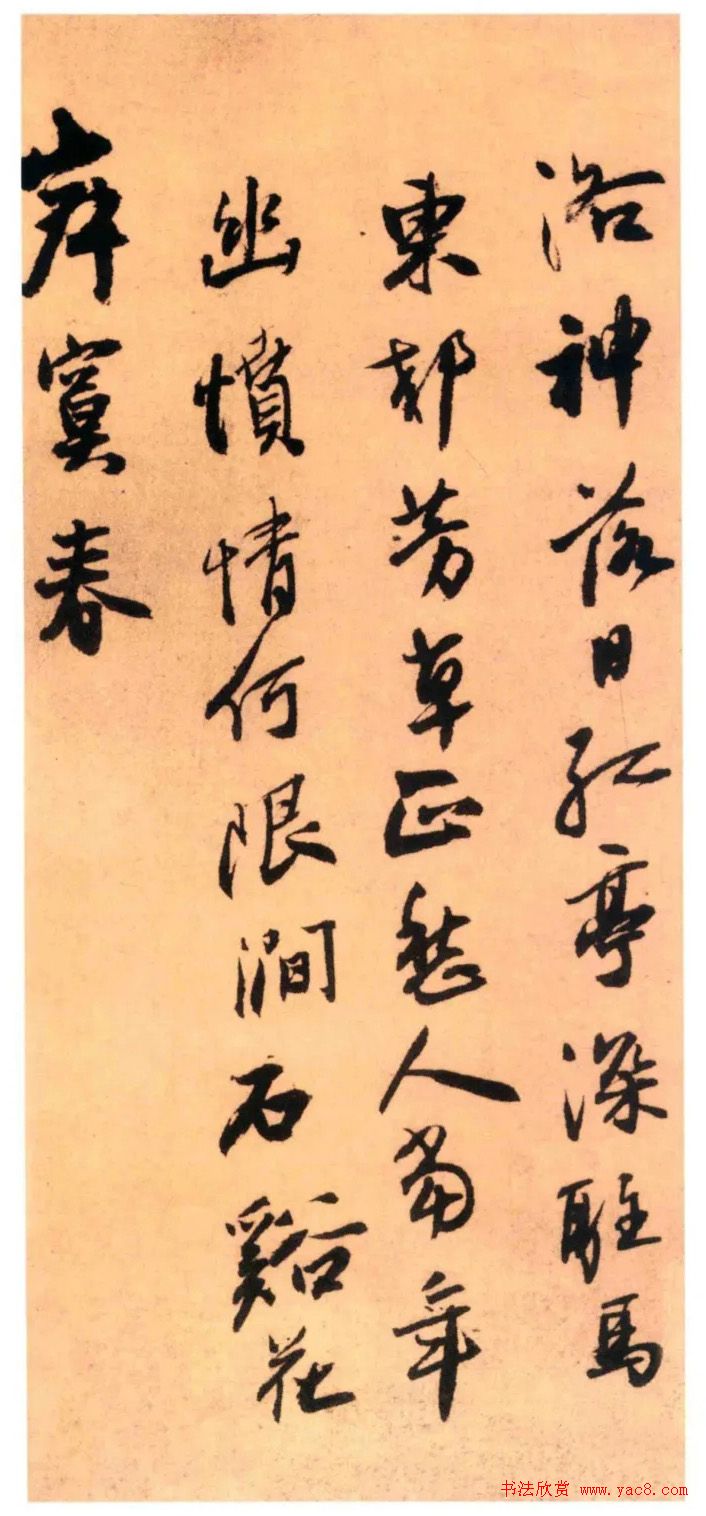 洛神落日紅亭深駐馬
東都芳草正愁人當年
幽憤情何限澗石谿花
寞春
书法欣赏 www.yac8.com